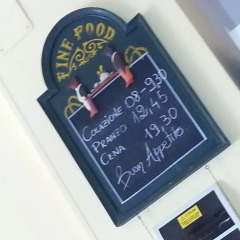 FINE FOOD
COLAZIONE 08-9,30
PRANZO 12,45
CENA 19,30
Buon Appetito